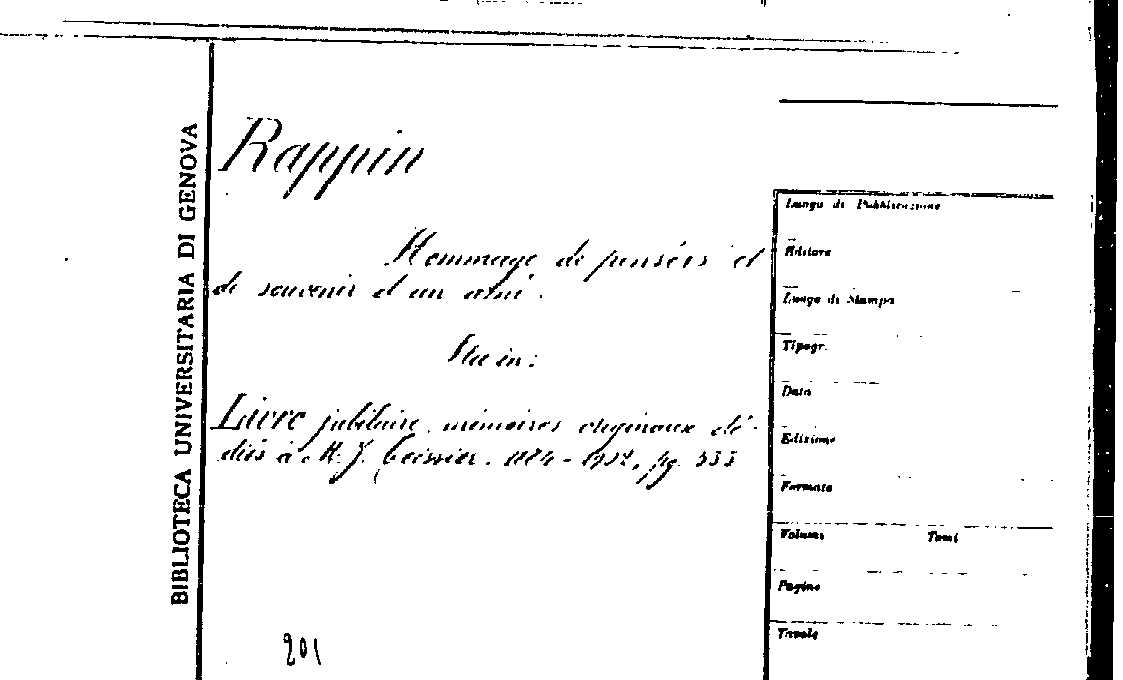 BIBLIOTECA UNIVERSITARIA DI GENOVA
Rappin
Hommage de pensées et
de souvenir d'un ami.
Sta in:
Livre jubilaire, mémoires originaux dé-
diés à M. J. Teissier. 1884-1912, pg. 333
201
Luogo di Pubblicazione
Editore
Luogo di Stampa
Tipogr.
Data
Edizione
Formato
Volumi Tomi
Pagine
Tavole